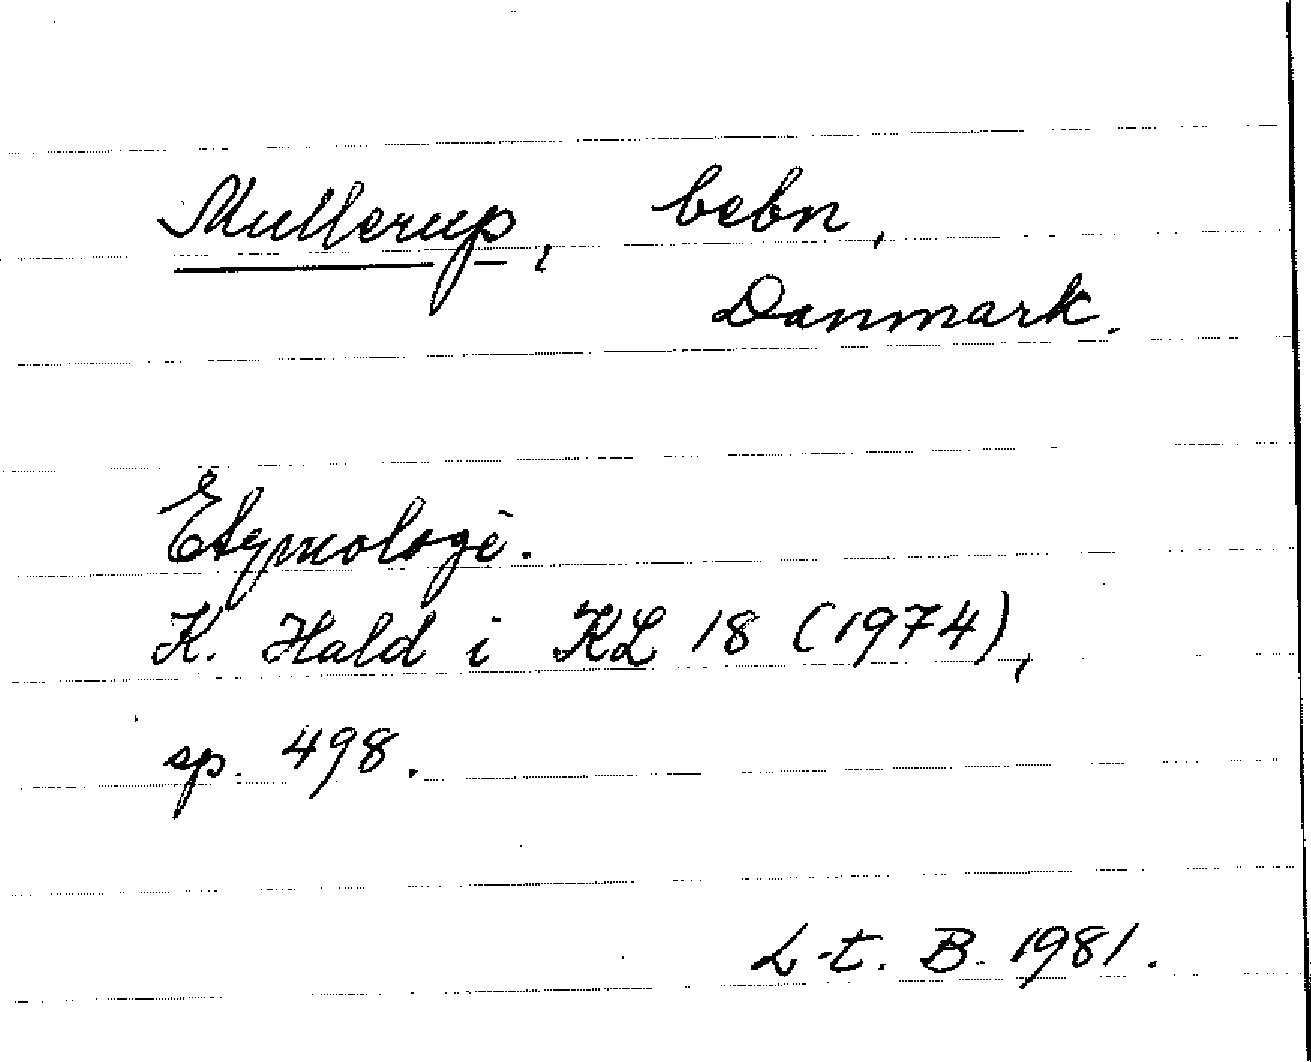 Mullerup, bebn,
Danmark.
Etymologi.
K. Hald i KL 18 (1974),
sp. 498.
L-t. B. 1981.